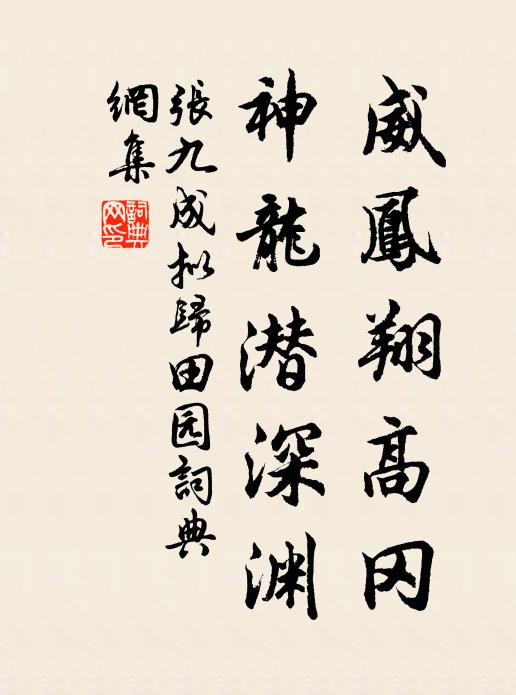 威鳳翔高冈
神龍潜深渊
張九成拟歸田园詞典
網集
詞典网印